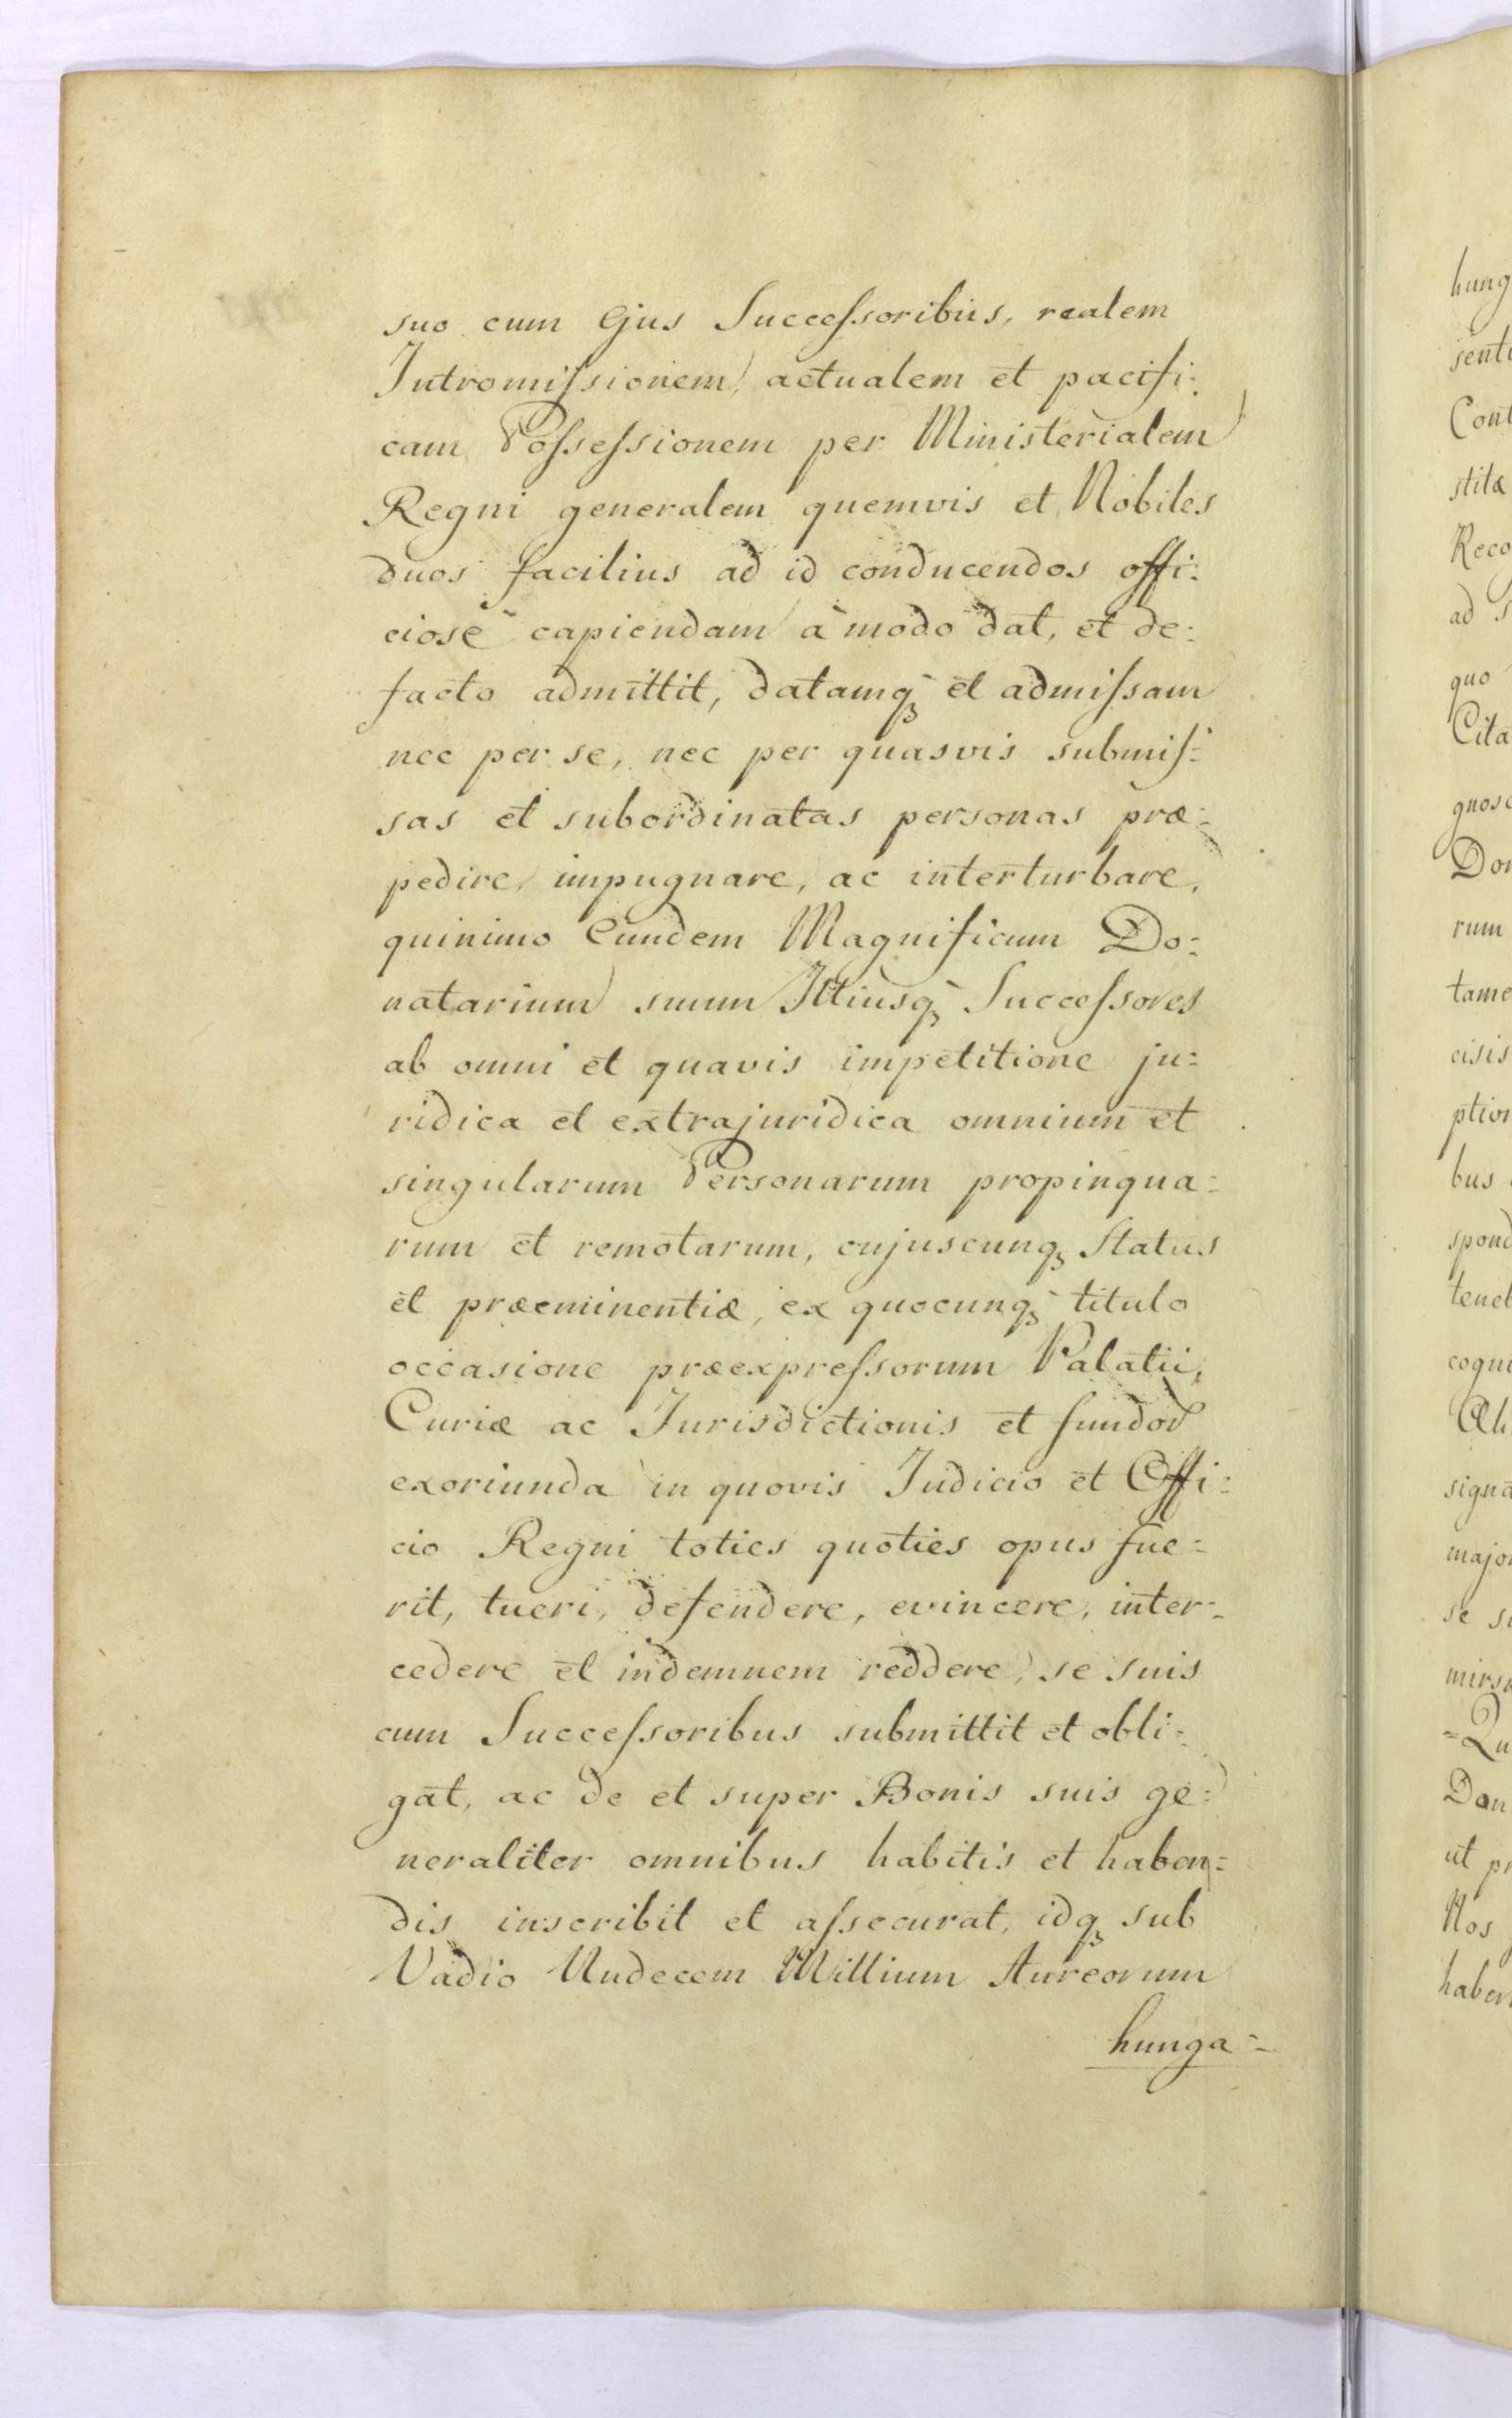 suo cum Ejus Succeſsoribus, realem
Intromiſsionem, actualem et pacifi:
cam Poſseſsionem per Ministerialem
Regni generalem quemvis et Nobiles
duos facilius ad id conducendos offi:
ciosè capiendam à modo dat, et de:
facto admittit, datamq̀ꝫ et admiſsam
nec per se, nec per quasvis submiſ:
sas et subordinatas personas præ:
pedire, impugnare, ac interturbare,
quinimo Eundem Magnificum Do:
natarium suum Illiusq̀ꝫ Succeſsores
ab omni et quavis impetitione ju:
ridica et extrajuridica omnium et
singularum Personarum propinqua:
rum et remotarum, cujuscunqꝫ Status
et præeminentiæ, ex quocunq̀ꝫ titulo
occasione præexpreſsorum Palatii,
Curiæ ac Jurisdictionis et fundor̄
exoriunda in quovis Judicio et Offi:
cio Regni toties quoties opus fue:
rit, tueri, defendere, evincere, inter:
cedere et indemnem reddere, se suis
cum Succeſsoribus submittit et obli:
gat, ac de et super Bonis suis ge:
neraliter omnibus habitis et haben:
dis inscribit et aſsecurat, idqꝫ sub
Vadio Undecem Millium Aureorum
hunga:
hung
senti
Cont
stitæ
Reco
ad S
quo
Cita
gnosc
Don
rum
tame
cisis
ption
bus
spond
teneb
signa
major
se su
Qu
Don
ut pr
Nos
haben